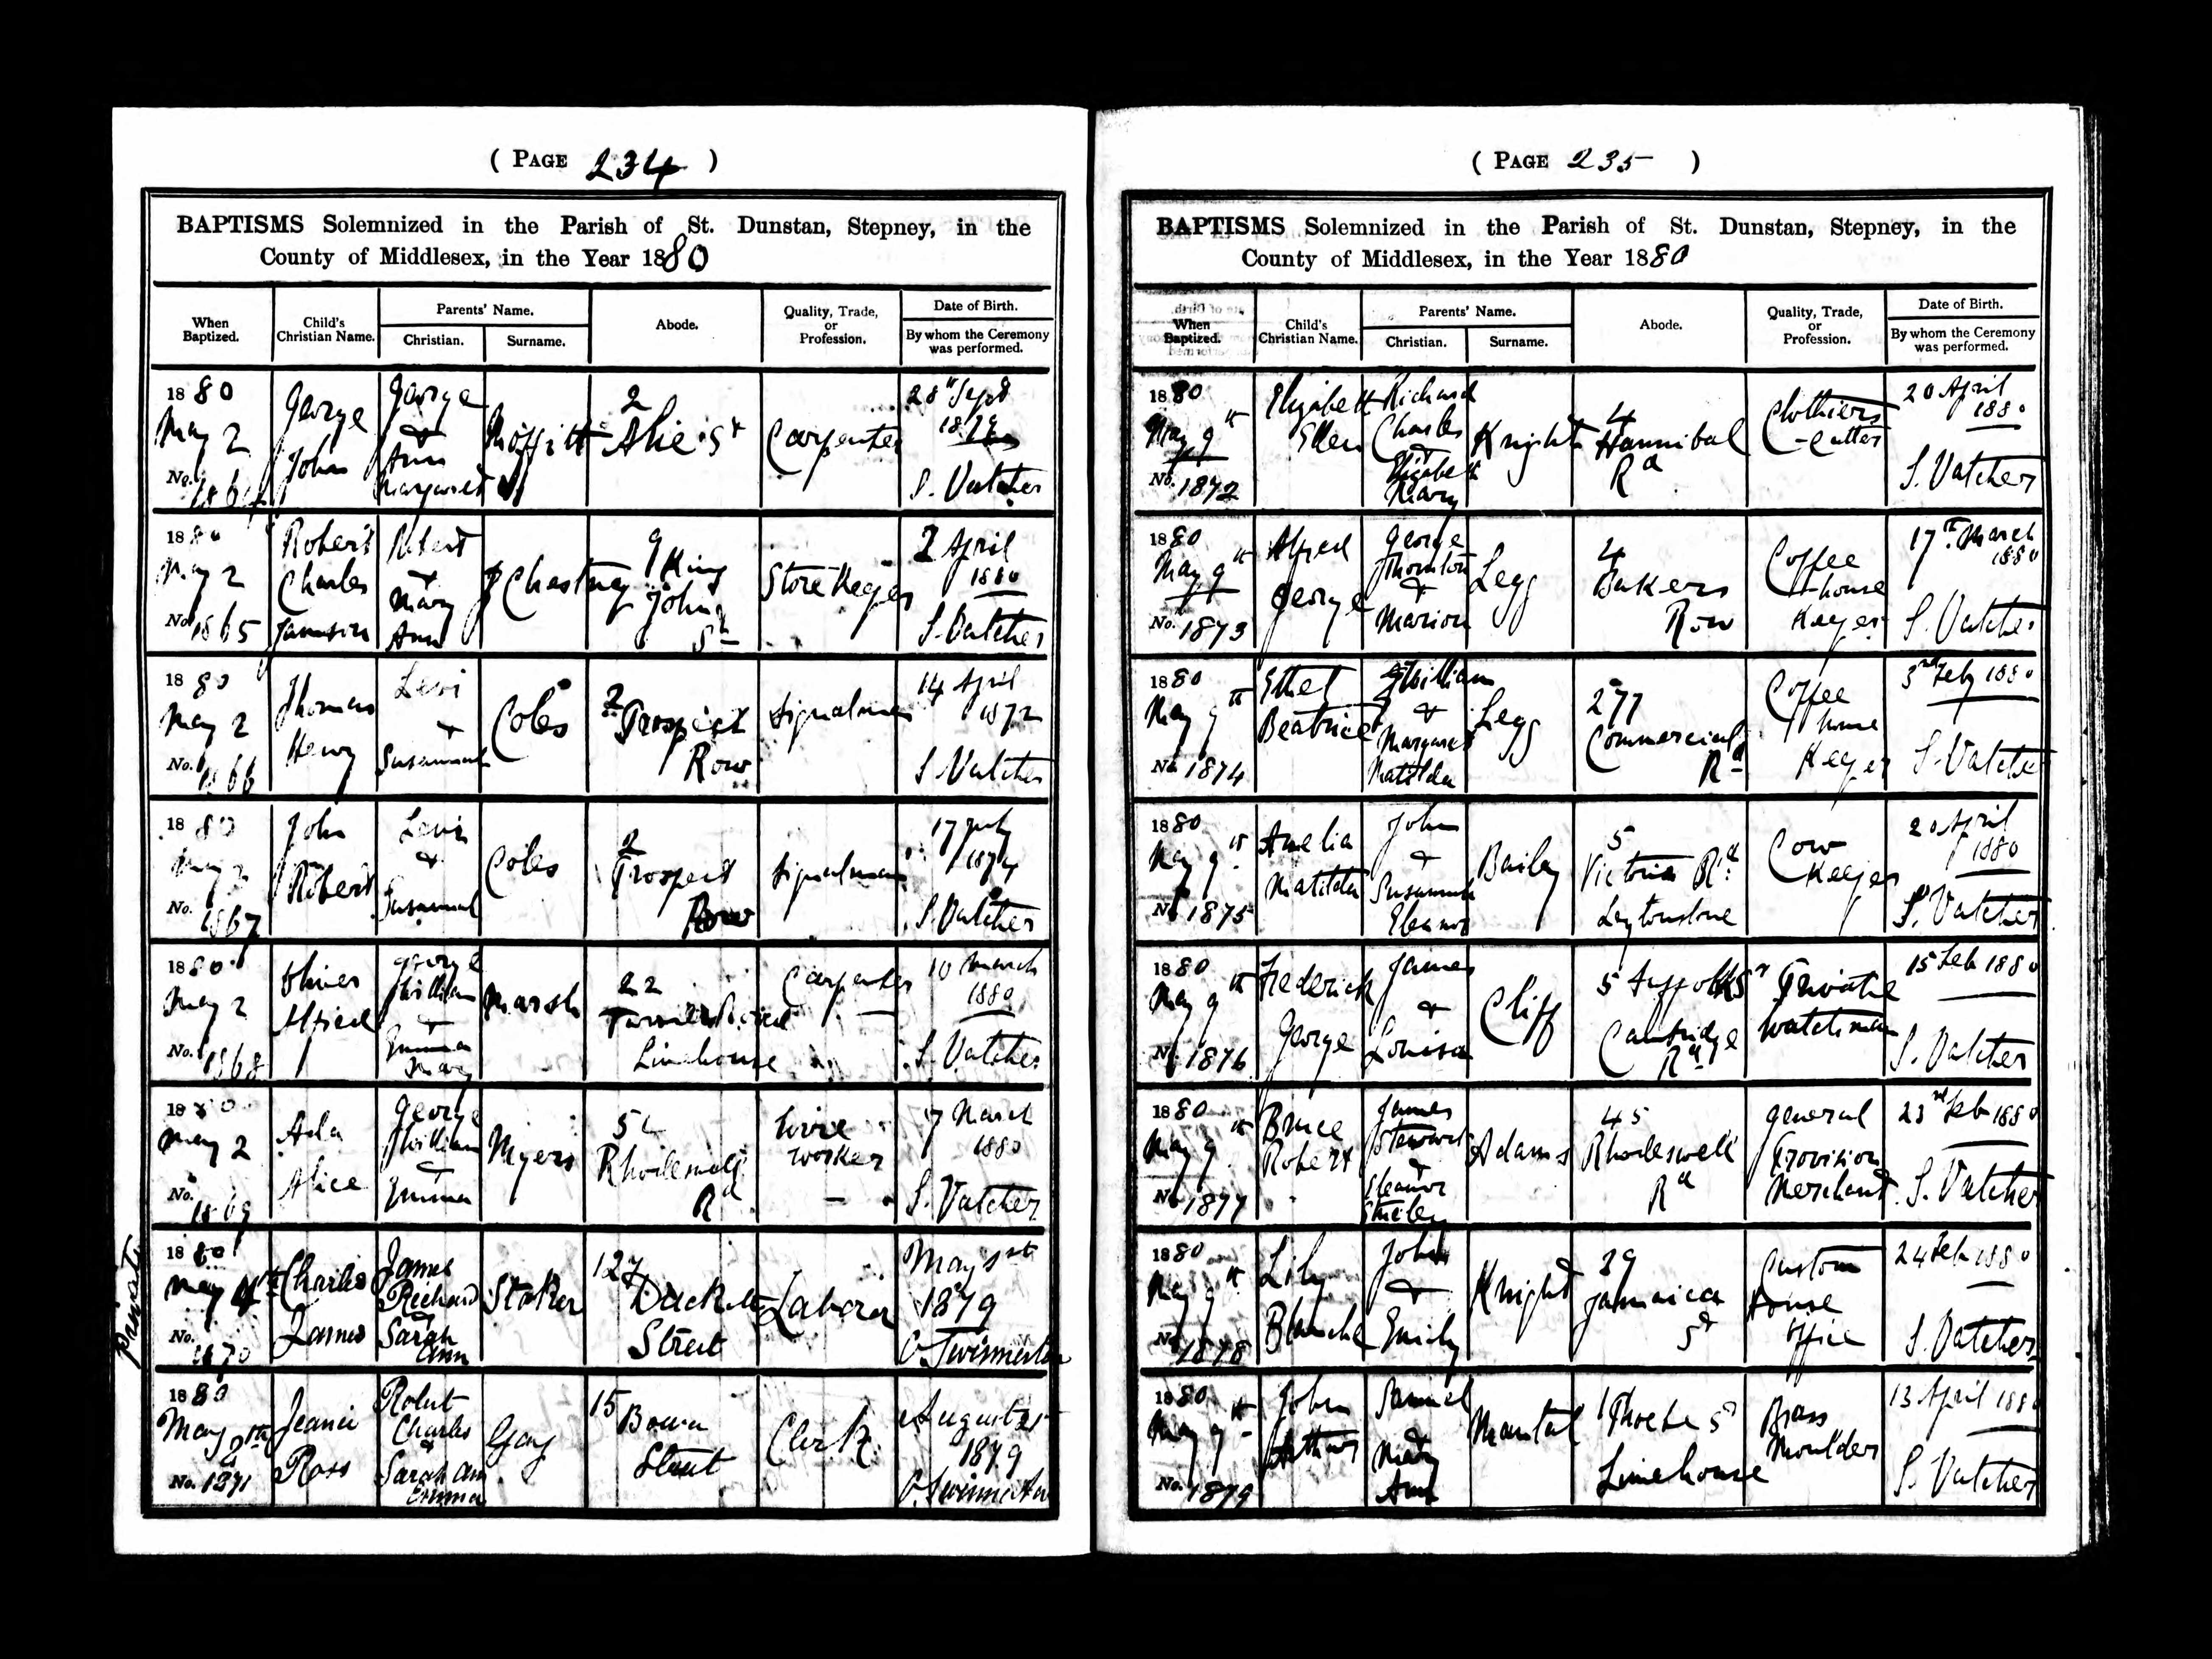 ( PAGE 234 )
BAPTISMS Solemnized in the Parish of St. Dunstan, Stepney, in the
County of Middlesex, in the Year 1880
When Baptized.
Child's Christian Name.
Parents' Name.
Christian.
Surname.
Abode.
Quality, Trade, or Profession.
Date of Birth.
By whom the Ceremony was performed.
1880
May 2
No. 1864
George
John
George
&
Ann
Margaret
Moffitt
2
Alie St
Carpenter
28th Sept
S. Vatcher
1880
May 2
No. 1865
Robert
Charles
Robert
&
Mary
Ann
Chestney
9 King
John
St
Store Keeper
2 April
1880
S. Vatcher
1880
May 2
No. 1866
Thomas
Henry
Levi
&
Susannah
Coles
2
Prospect
Row
Signalman
14 April
1872
S. Vatcher
1880
May 2
No. 1867
John
Robert
Levi
&
Susannah
Coles
2
Prospect
Row
Signalman
17 July
1874
S. Vatcher
1880
May 2
No. 1868
Oliver
Alfred
George
William
&
Emma
Mary
Marsh
22
Limehouse
Carpenter
10 March
1880
S. Vatcher
1880
May 2
No. 1869
Ada
Alice
George
William
&
Emma
Myers
Rhodeswell
Rd
Wire
worker
7 March
1880
S. Vatcher
Private
1880
May 4th
No. 1870
Charles
James
James
Richard
&
Sarah
Ann
Stoker
127
Duckett
Street
Laborer
May 1st
1879
C. Swinnerton
1880
May
No. 1871
Jeanie
Ross
Robert
Charles
&
Sarah Ann
Emma
Gay
15
Street
Clerk
August 21
1879
C. Swinnerton
( PAGE 235 )
BAPTISMS Solemnized in the Parish of St. Dunstan, Stepney, in the
County of Middlesex, in the Year 1880
When Baptized.
Child's Christian Name.
Parents' Name.
Christian.
Surname.
Abode.
Quality, Trade, or Profession.
Date of Birth.
By whom the Ceremony was performed.
1880
May 9th
No. 1872
Elizabeth
Ellen
Richard
Charles
&
Elizabeth
Mary
Knight
4
Hannibal
Rd
Clothiers
-cutter
20 April
1880
S. Vatcher
1880
May 9th
No. 1873
Alfred
George
George
Thornton
&
Marion
Legg
4
Bakers
Row
Coffee
house
Keeper
17th March
1880
S. Vatcher
1880
May 9th
No. 1874
Ethel
Beatrice
William
&
Margaret
Matilda
Legg
277
Commercial
Rd
Coffee
house
Keeper
3rd Feby 1880
S. Vatcher
1880
May 9th
No. 1875
Amelia
Matilda
John
&
Susannah
Eleanor
Bailey
5
Victoria Rd
Leytonstone
Cow
Keeper
20 April
1880
S. Vatcher
1880
May 9th
No. 1876
Frederick
George
James
&
Louisa
Cliff
5 Suffolk St
Cambridge
Rd
Private
Watchman
15 Feb 1880
S. Vatcher
1880
May 9th
No. 1877
Bruce
Robert
James
Stewart
&
Eleanor
Adams
45
Rhodeswell
Rd
General
Provision
Merchant
23rd Feb 1880
S. Vatcher
1880
May 9th
No. 1878
Lily
Blanche
John
&
Emily
Knight
39
Jamaica
St
Custom
House
Office
24 Feb 1880
S. Vatcher
1880
May 9th
No. 1879
John
Arthur
Samuel
&
Mary
Ann
Mantal
1 Phoebe St
Limehouse
Brass
Moulder
13 April 1880
S. Vatcher